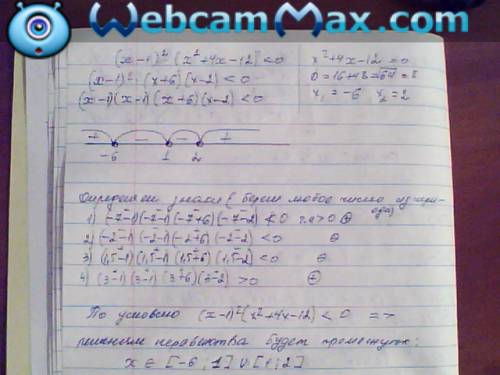 WebcamMax.com
(x-1)² (x²+4x-12) < 0
x²+4x-12=0
(x-1)² (x+6)(x-2) < 0
D=16+48=√64=8
(x-1)(x-1)(x+6)(x-2) < 0
x₁=-6 x₂=2
+ - - +
-6 1 2
Определяем знаки (берем любое число из
1) (-7-1)(-7-1)(-7+6)(-7-2) > 0 ⊕
2) (-2-1)(-2-1)(-2+6)(-2-2) < 0 ⊖
3) (1,5-1)(1,5-1)(1,5+6)(1,5-2) < 0 ⊖
4) (3-1)(3-1)(3+6)(3-2) > 0 ⊕
По условию (x-1)²(x²+4x-12) < 0 =>
решением неравенства будет промежуток:
x ∈ [-6; 1] ∪ [1; 2]